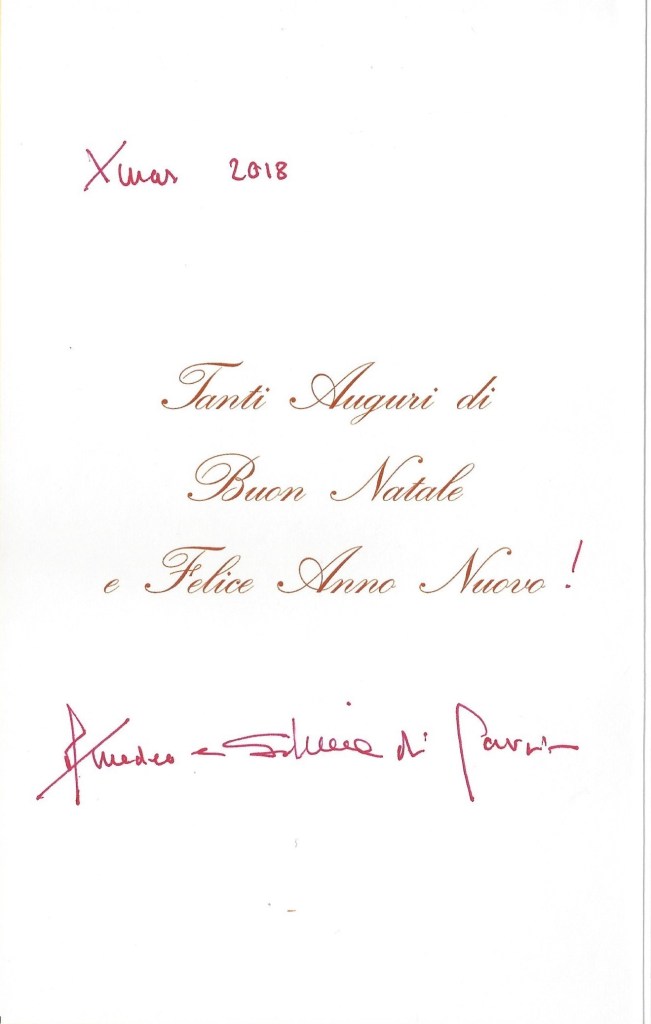 Xmas 2018
Tanti Auguri di
Buon Natale
e Felice Anno Nuovo!
Amedeo e Silvia di Savoia